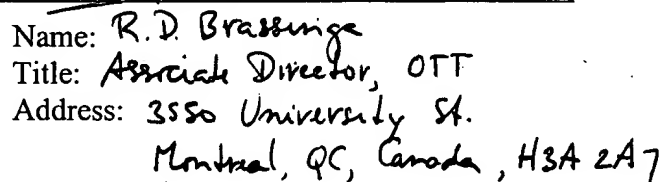 Name: R.D. Brassinga
Title: Associate Director, OTT
Address: 3550 University St.
Montreal, QC, Canada, H3A 2A7